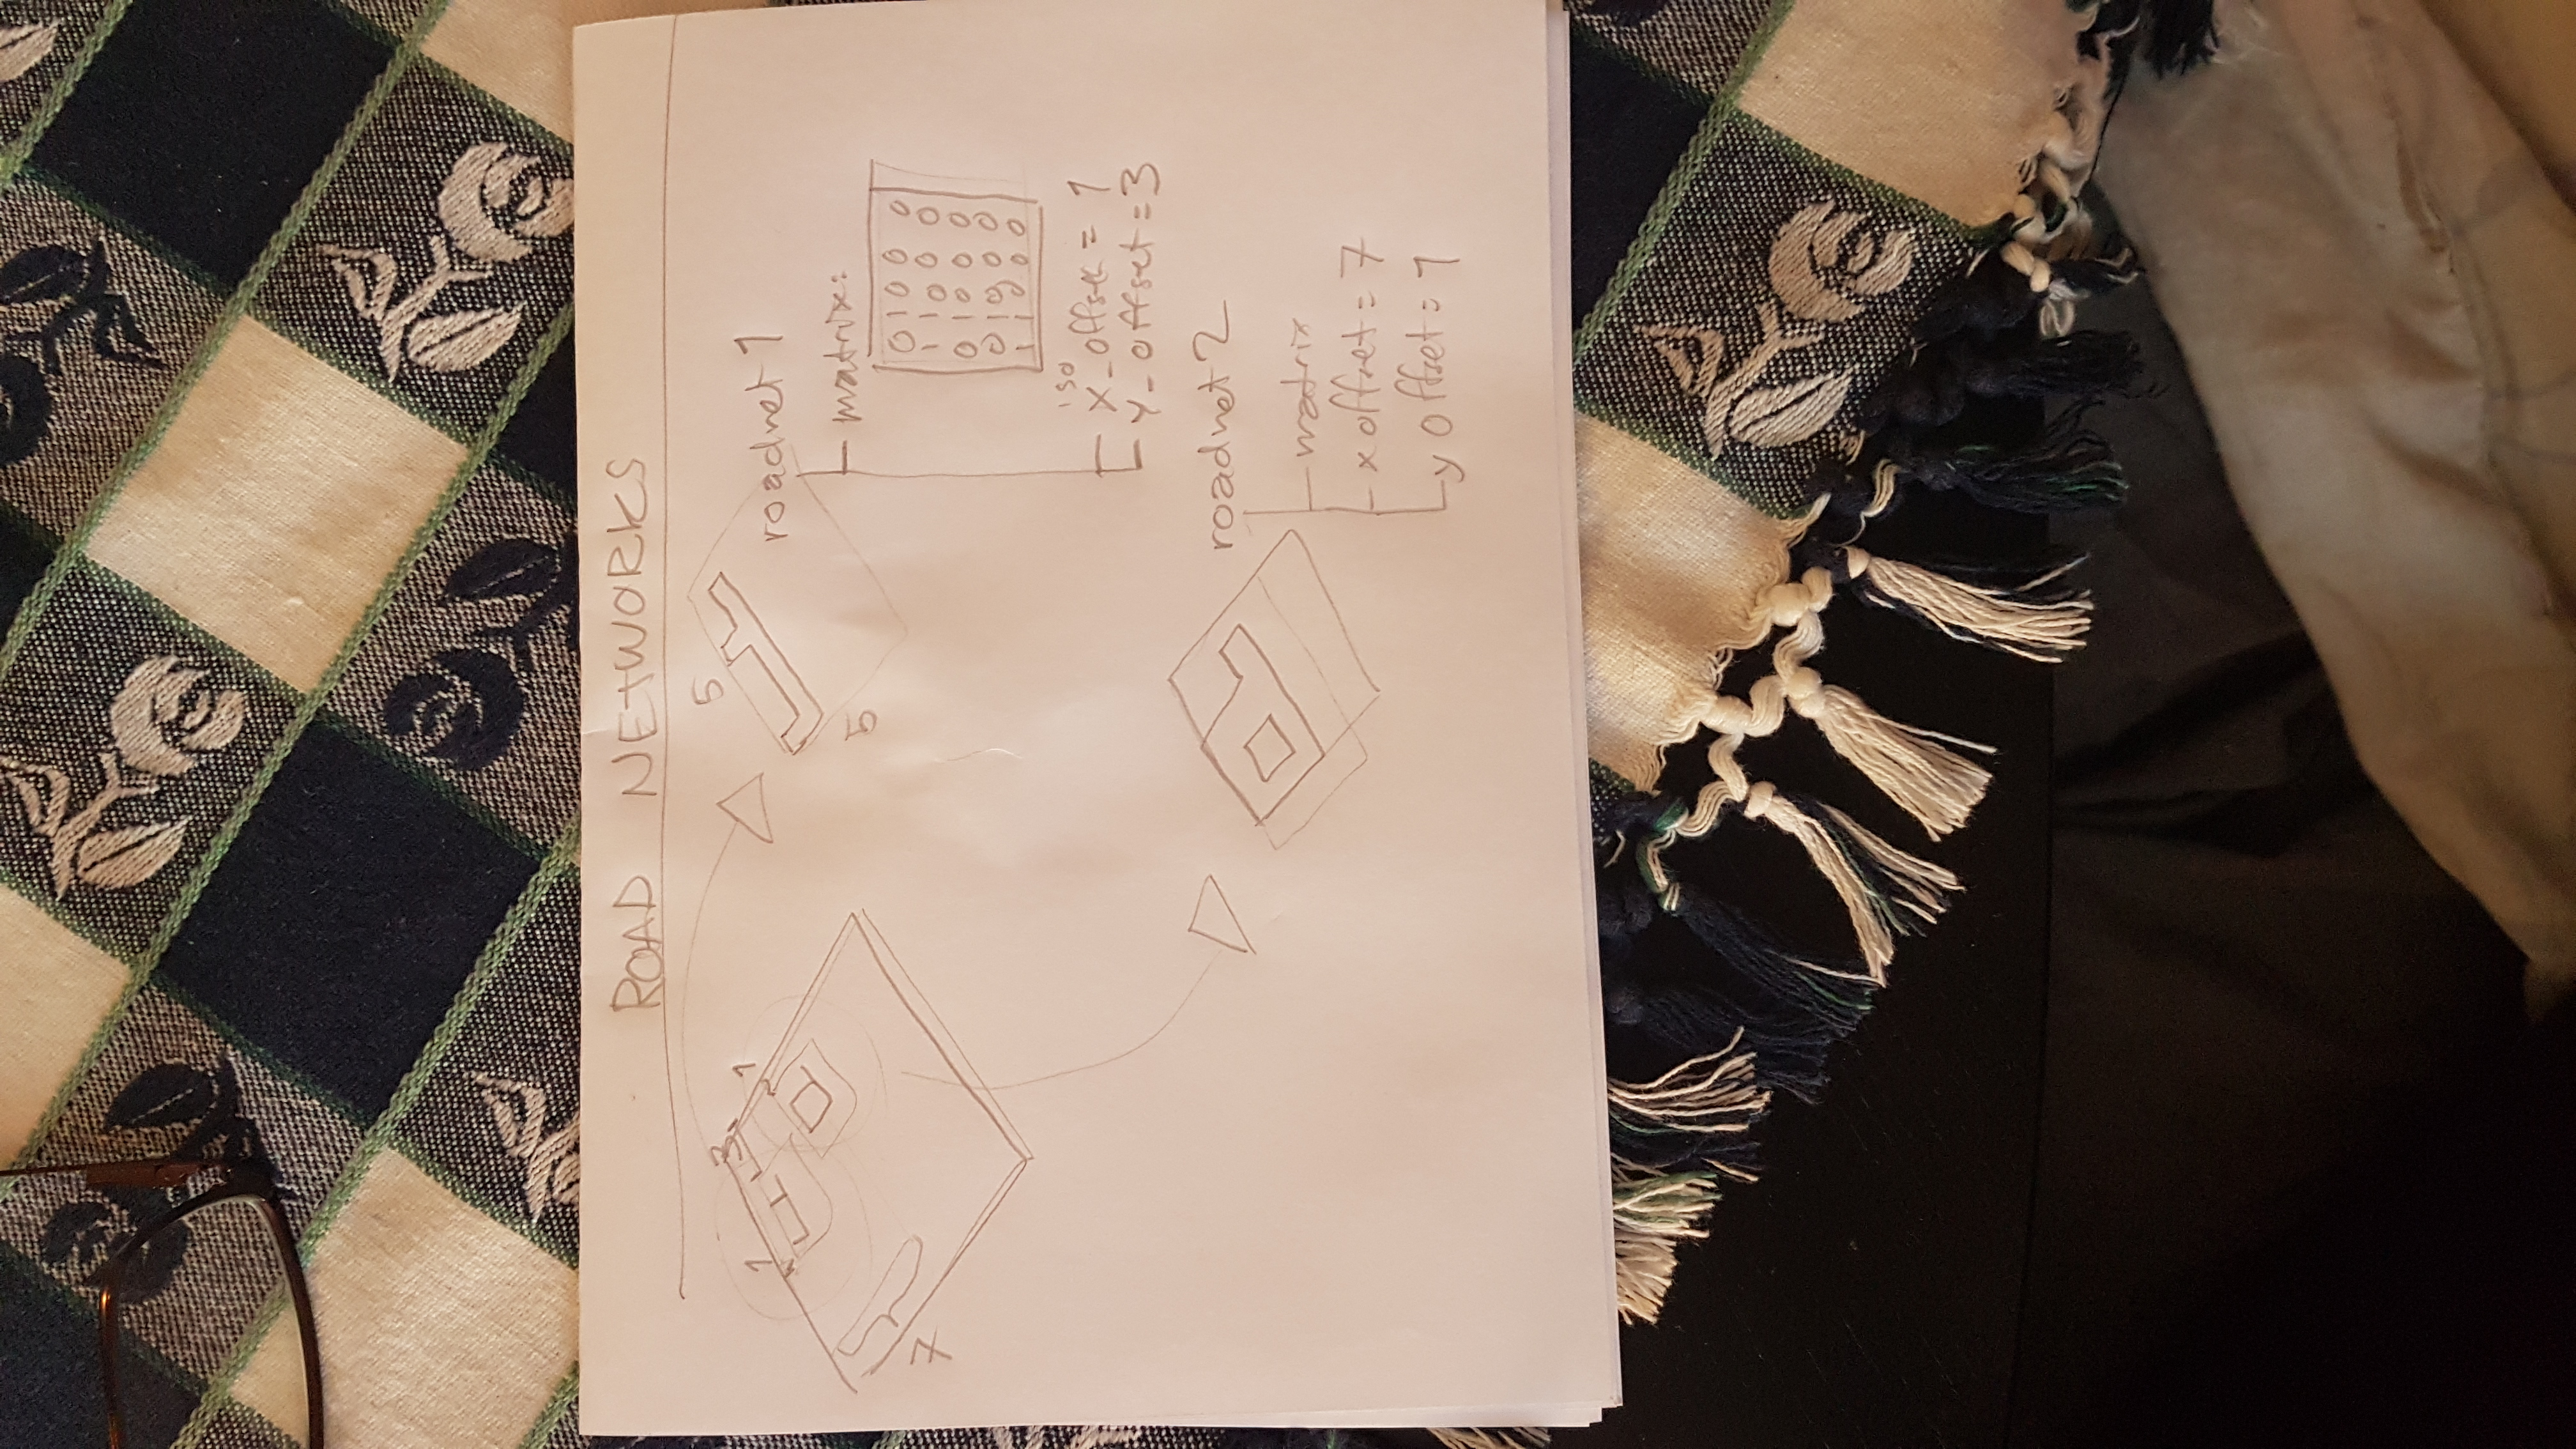 ROAD NETWORKS
3
1
1
7
5
5
roadnet 1
matrix:
0 1 0 0 0
1 1 0 0 0
0 1 0 0 0
0 1 0 0 0
1 1 0 0 0
iso
x_offset = 1
y_offset = 3
roadnet 2
matrix
x offset = 7
y offset = 1